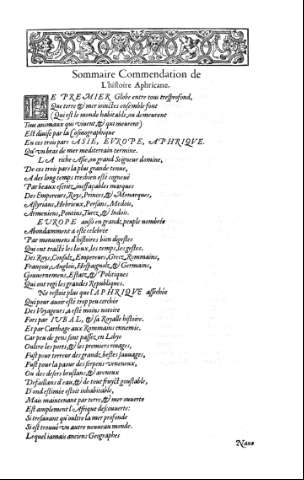 Sommaire Commendation de
L'histoire Aphricane.
LE PREMIER Globe entre tous tresprofond,
Que terre & mer vnictes ensemble font
(Qui est le monde habitable, ou demeurent
Tous animaux qui viuent, & qui meurent)
Est diuisé par la Cosmographique
En ces trois pars ASIE, EVROPE, APHRIQVE.
Qu'vn bras de mer mediterrain termine.
LA riche Asie, ou grand Seigneur domine,
De ces trois pars la plus grande tenue,
A des long temps tresbien esté cognue
Par beaux escritz, ineffaçables marques
Des Empereurs, Roys, Princes, & Monarques,
Assyrians, Hebrieux, Persans, Medois,
Armeniens, Pontins, Turcz, & Indois.
EVROPE aussi en grands peuple nombrée
Abondamment a esté celebrée
Par monumens d'histoires bien digestes
Qui ont traité les lieux, les temps, les gestes.
Des Roys, Consulz, Empereurs, Grecz, Rommains,
François, Anglois, Hespagnolz, & Germains,
Gouuernemens, Estatz, & Politiques
Qui ont regi les grandes Republiques.
Ne restoit plus que l'APHRIQVE assechée
Qui pour auoir esté trop peu cerchée
Des Voyageurs, a esté moins notoire
Fors par IVBAL, & sa Royalle histoire.
Et par Carthage aux Rommains ennemie,
Car peu de gens sont passez en Libye
Oultre les ports, & les premiers riuages,
Fust pour terreur des grandz bestes sauuages,
Fust pour la peur des serpens veneneux,
Ou des desers bruslans, & areneux
Defaillans d'eau, & de tout fruyct goustable,
D'ond estimée estoit inhabitable,
Mais maintenant par terre, & mer ouuerte
Est amplement l'Afrique descouuerte:
Si tresauant qu'oultre la mer profonde
Si est trouué vn autre nouueau monde.
Lequel iamais anciens Geographes
Naue